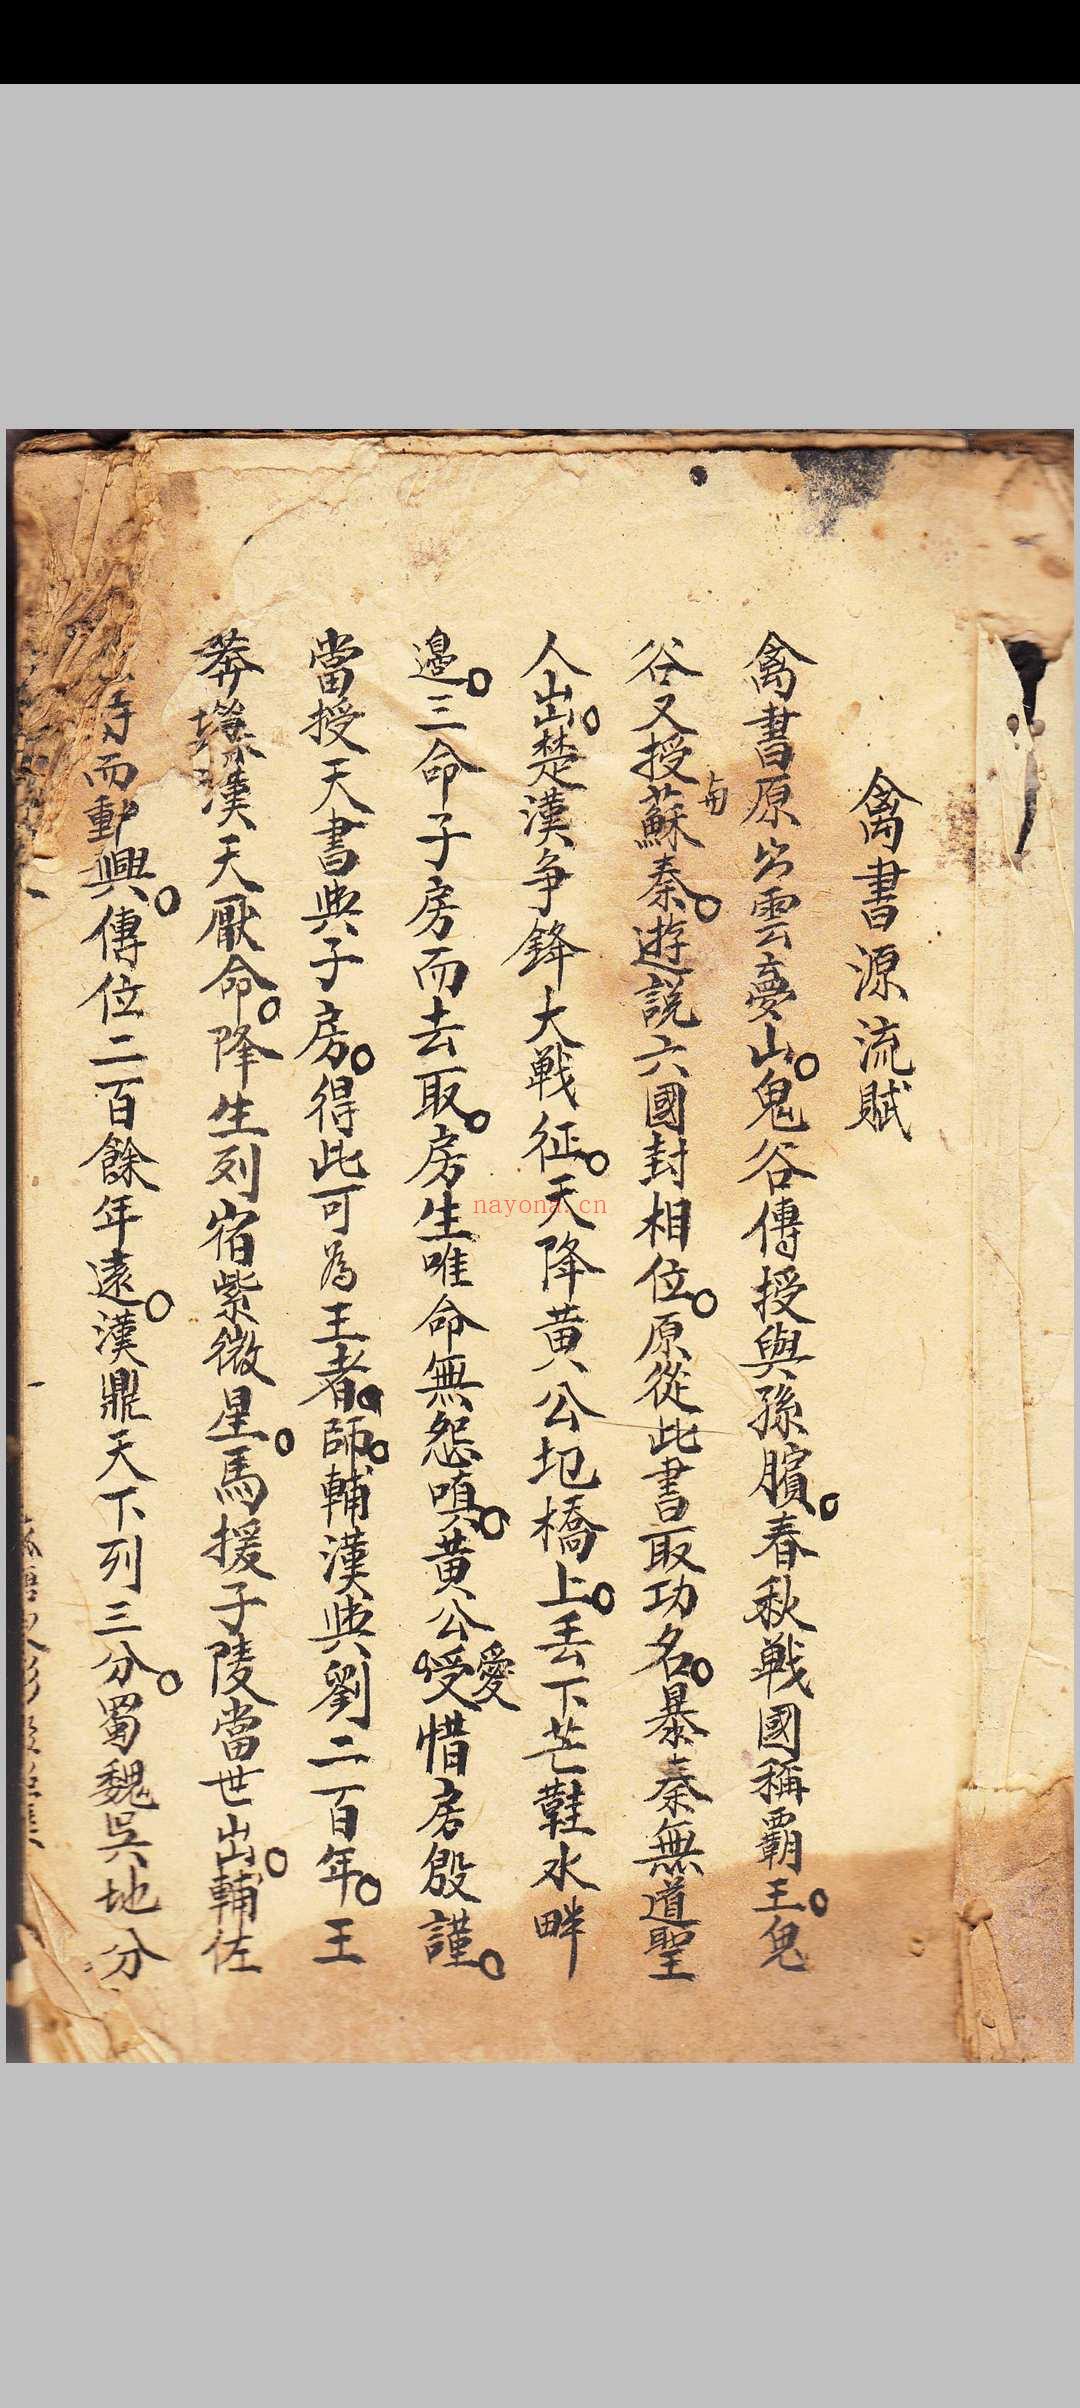 禽書源流賦
禽書原出雲夢山鬼谷傳授與孫臏春秋戰國稱覇王鬼
谷又授蘇秦遊説六國封相位原從此書取功名暴秦無道聖
人出楚漢争鋒大戰征天降黄公圯橋上丢下芒鞋水畔
邉三命子房而去取房生唯命無怨嗔黄公受愛惜房殷謹
當授天書與子房得此可為王者師輔漢興劉二百年王
莽漢天厭命降生列宿紫微星馬援子陵當世出輔佐
而動興傳位二百餘年遠漢鼎天下列三分蜀魏吳地分
nayona.cn